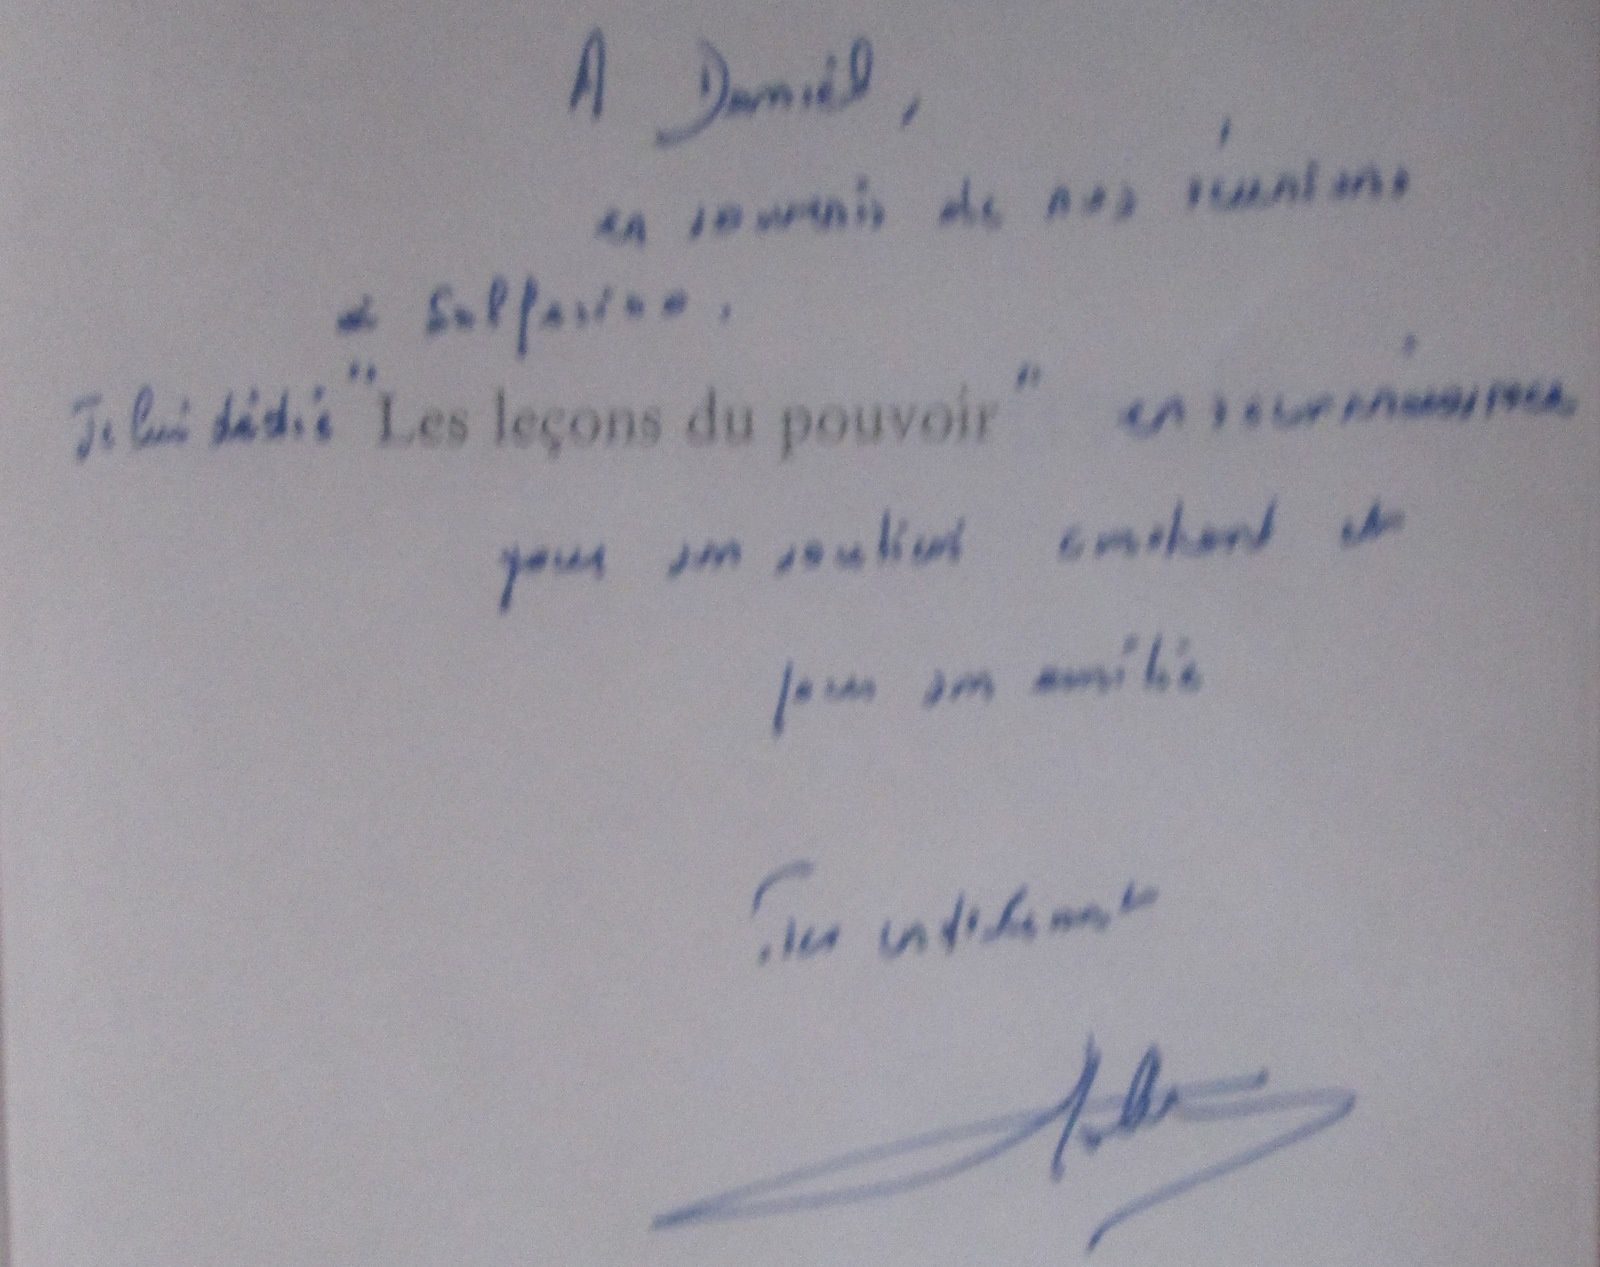 A Daniel,
en souvenir de nos réunions
à Solférino,
Je lui dédie "Les leçons du pouvoir" en reconnaissance
pour son soutien constant et
pour son amitié
Très cordialement